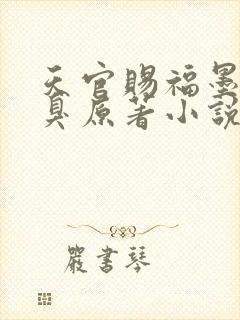 天官賜福墨
臭原著小說
嚴書琴